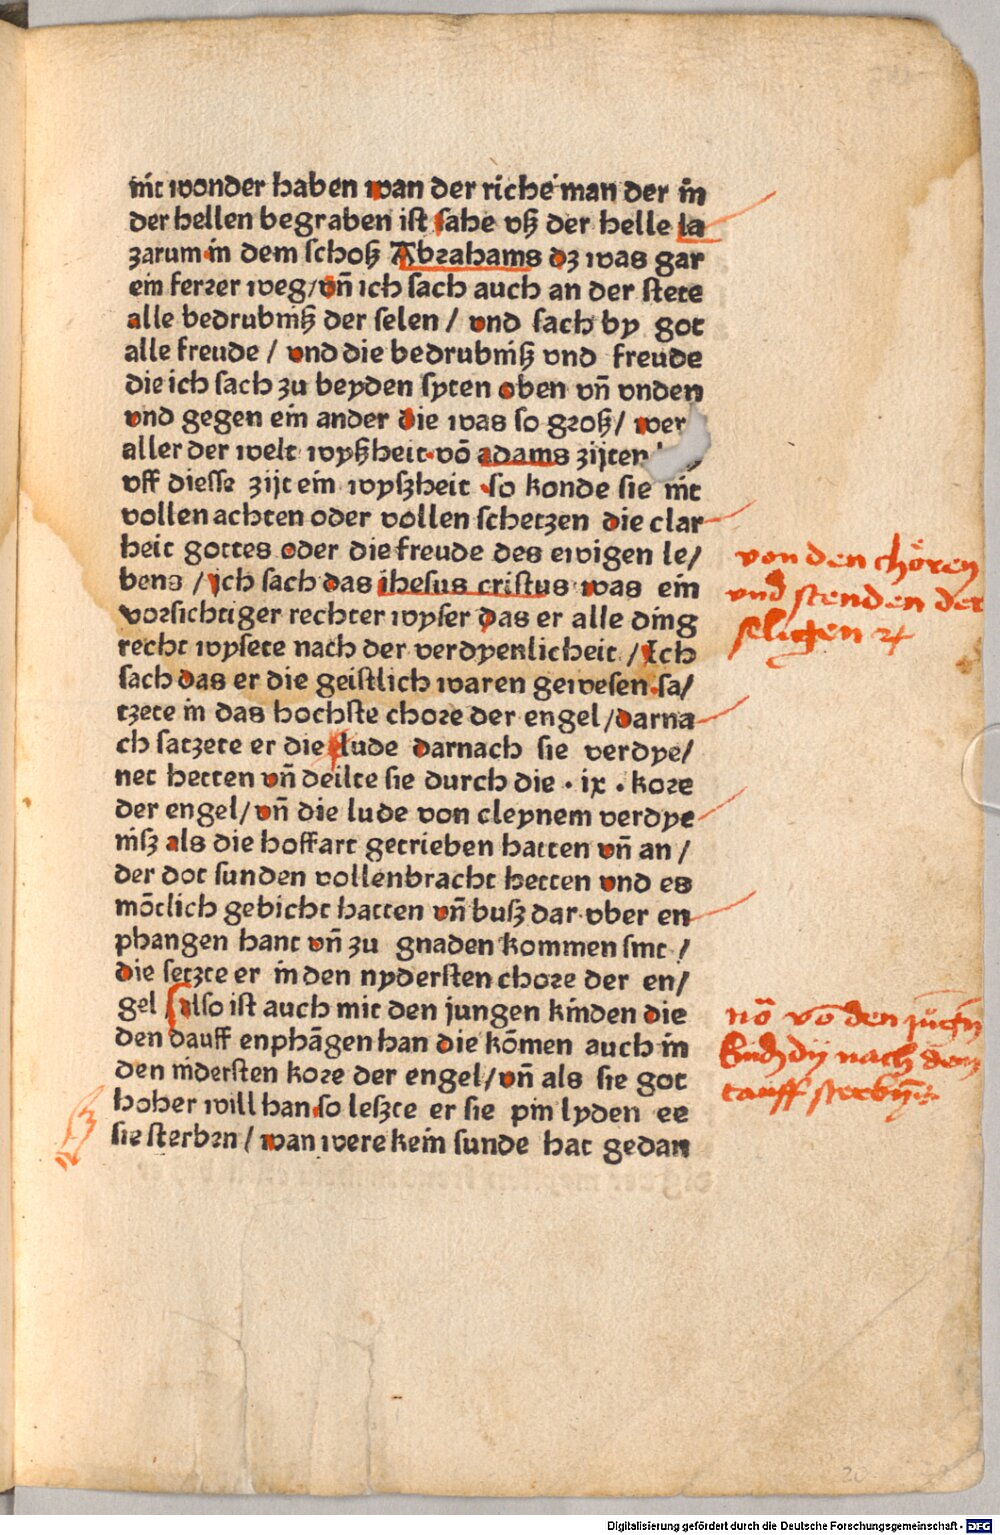 nit wonder haben wan der riche man der in
der hellen begraben ist sahe vß der helle la
zarum in dem schoß Abrahams dz was gar
ein ferrer weg/vn̄ ich sach auch an der stete
alle bedrubniß der selen / vnd sach by got
alle freude / vnd die bedrubniß vnd freude
die ich sach zu beyden syten oben vn̄ vnden
vnd gegen ein ander die was so groß/ wer
aller der welt wyßheit vō adams zijten
vff diesse zijt ein wyszheit so konde sie nit
vollen achten oder vollen schetzen die clar
heit gottes oder die freude des ewigen le/
bens / ich sach das ihesus cristus was ein
vorsichtiger rechter wyser das er alle ding
recht wysete nach der verdyenlicheit / Ich
sach das er die geistlich waren gewesen sa/
tzete in das hochste chore der engel/darna
ch satzete er die lude darnach sie verdye/
net hetten vn̄ deilte sie durch die · ix · kore
der engel/vn̄ die lude von cleynem verdye
nisz als die hoffart getrieben hatten vn̄ an /
der dot sunden vollenbracht hetten vnd es
mōtlich gebicht hatten vn̄ busz dar vber en
phangen hant vn̄ zu gnaden kommen sint /
die setzte er in den nydersten chore der en/
gel Also ist auch mit den jungen kinden die
den dauff enphāgen han die kōmen auch in
den nidersten kore der engel/vn̄ als sie got
hoher will han so leszte er sie pin lyden ee
sie sterben / wan were kein sunde hat gedan
von den chören
vnd stenden der
seligen
nō vō den
nach dem
tauff
20
Digitalisierung gefördert durch die Deutsche Forschungsgemeinschaft - DFG